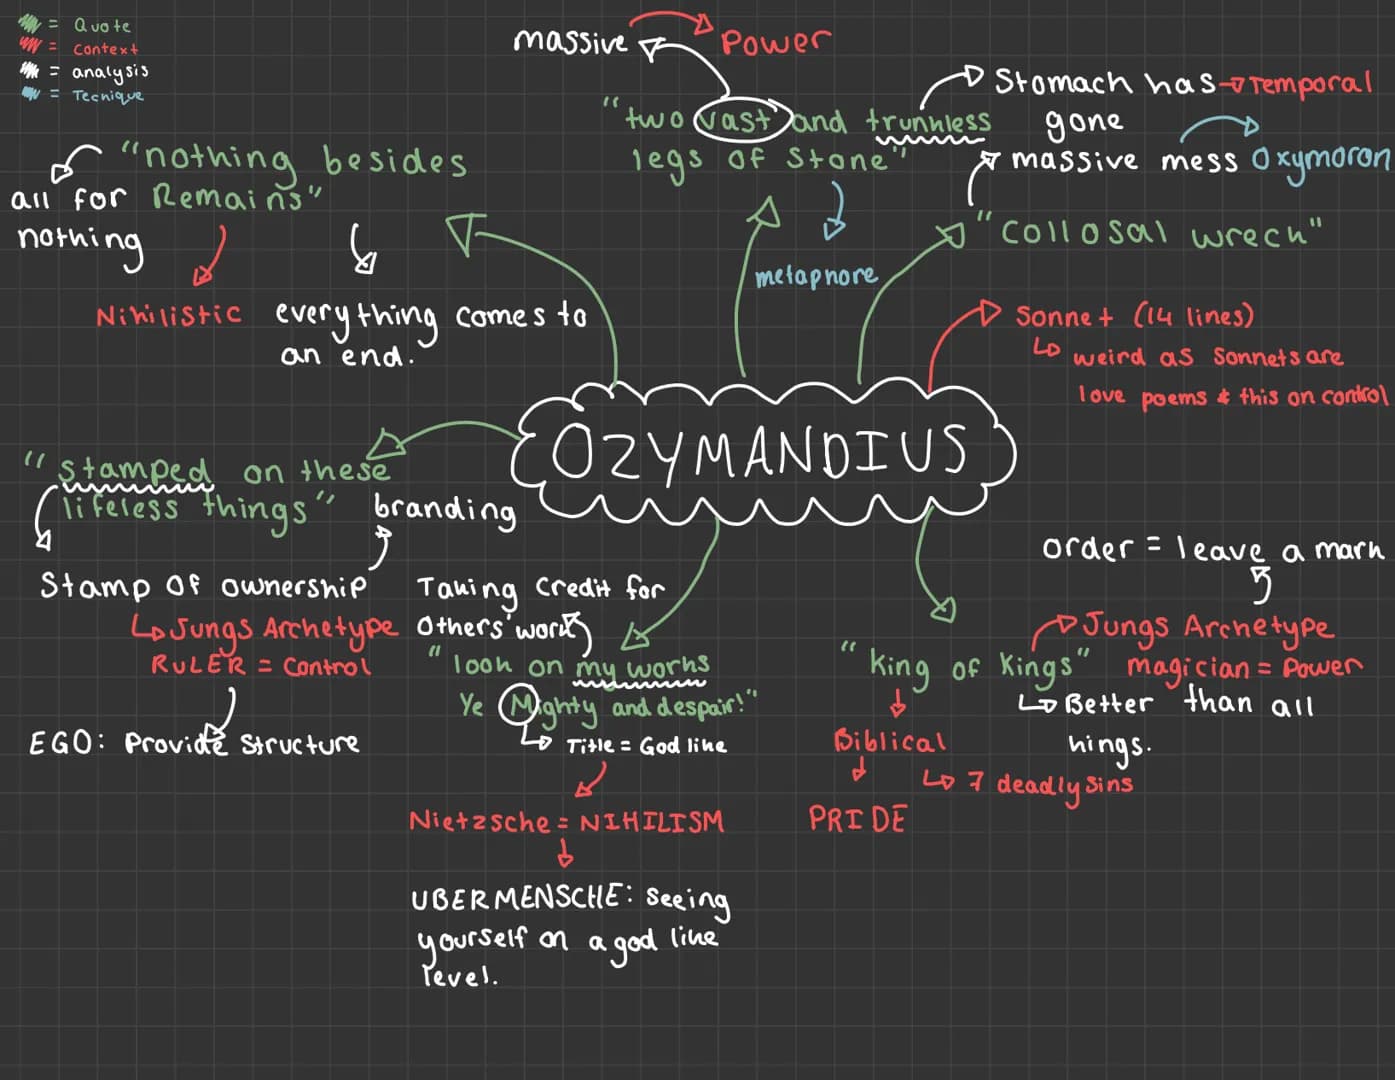 = Quote
= Context
= analysis
= Tecnique
massive
Power
"two vast and trunkless
legs of Stone"
metaphore
Stomach has
gone
Temporal
massive mess
Oxymoron
"Collosal wreck"
"nothing besides
Remains"
all for
nothing
Nihilistic
everything comes to
an end.
Sonnet (14 lines)
weird as Sonnets are
love poems & this on control
OZYMANDIUS
"stamped on these
lifeless things"
branding
Stamp of ownership
Jungs Archetype
RULER = Control
EGO: Provide Structure
Taking Credit for
Others' work
"look on my works
Ye Mighty and despair!"
Title = God like
Nietzsche = NIHILISM
UBERMENSCHE: Seeing
yourself on a god like
level.
order = leave a mark
Jungs Archetype
magician = Power
"King of Kings"
Better than all
hings.
Biblical
7 deadly sins
PRIDE